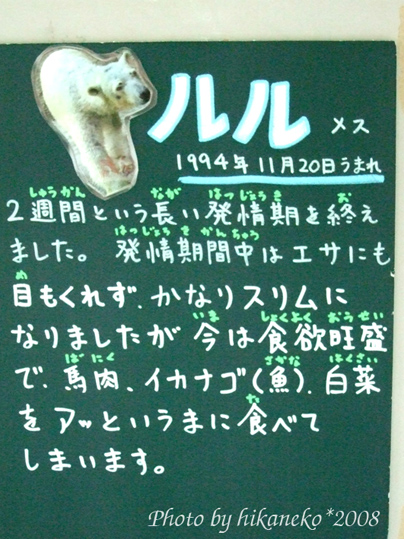 ルル メス
1994年11月20日うまれ
しゅうかん なが はつじょうき お
2週間という長い発情期を終え
はつじょうきかんちゅう
ました。発情期間中はエサにも
め
目もくれず、かなりスリムに
いま しょくよくおうせい
なりましたが今は食欲旺盛
ばにく さかな はくさい
で、馬肉、イカナゴ(魚)、白菜
た
をアッというまに食べて
しまいます。
Photo by hikaneko*2008